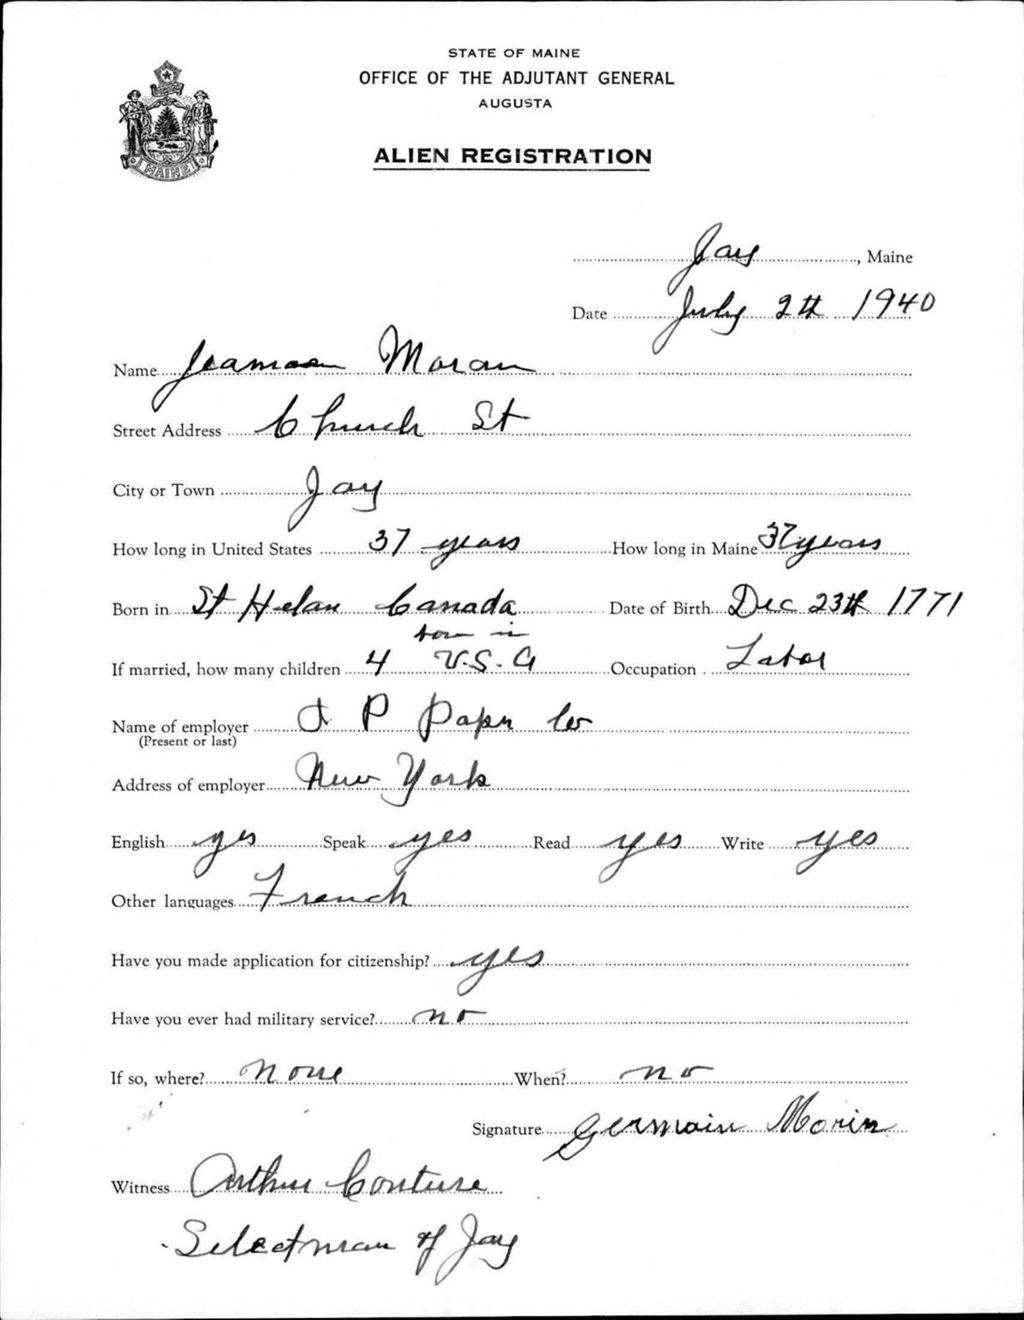 STATE OF MAINE
OFFICE OF THE ADJUTANT GENERAL
AUGUSTA
ALIEN REGISTRATION
MAINE
Jay, Maine
Date July 2th 1940
Name Moran
Street Address Church St
City or Town Jay
How long in United States 37 years How long in Maine 37 years
Born in St Helan Canada Date of Birth Dec 23th 1771
born in
If married, how many children 4 U.S.A Occupation Labor
Name of employer P Paper Co
(Present or last)
Address of employer New York
English yes Speak yes Read yes Write yes
Other languages French
Have you made application for citizenship? yes
Have you ever had military service? no
If so, where? none When? no
Signature Germain Morin
Witness Arthur Couture
Selectman of Jay